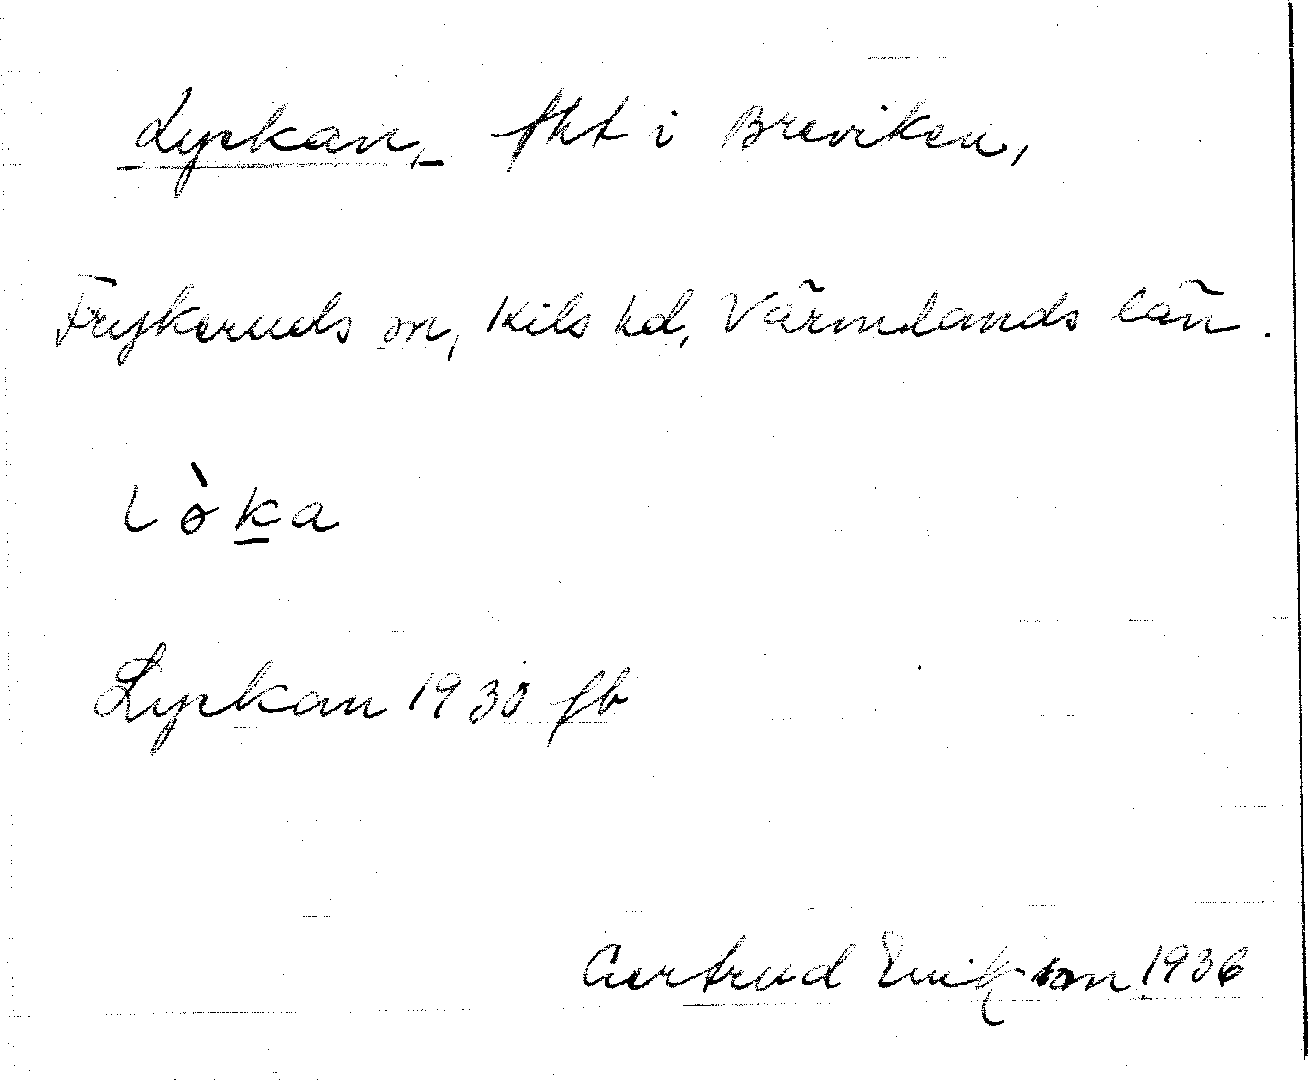 Lyckan, tht i Breviken,
Frykeruds sn, Kils hd, Värmlands län.
lò̀ka
Lyckan 1930 fb
Gertrud Erikson 1936